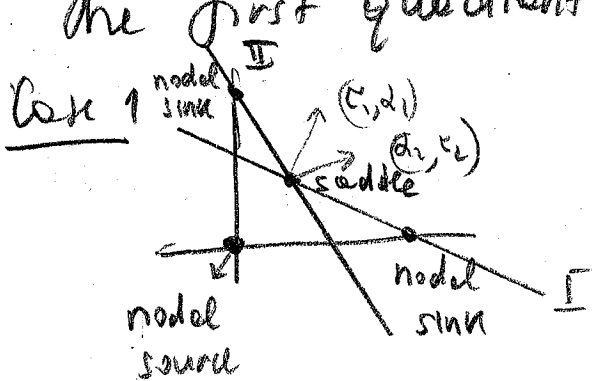 the first quadrant
II
Case 1
nodal
sink
(τ₁, α₁)
(α₂, τ₂)
saddle
nodal
sink
I
nodal
source